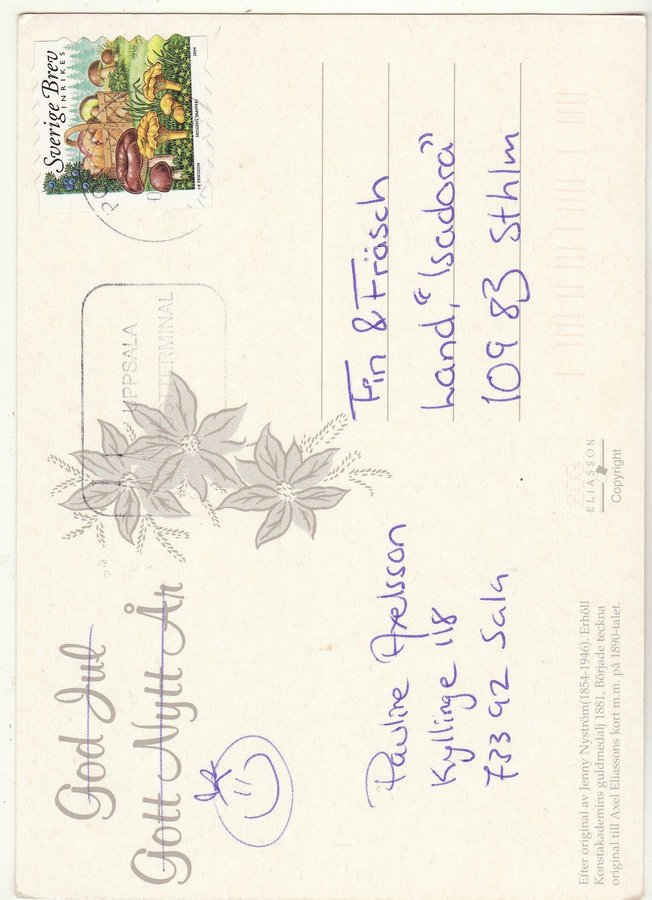 God Jul
Gott Nytt År
Sverige Brev
INRIKES
2004
SKOGENS TRATTISE
UPPSALA
TERMINAL
Pauline Axelsson
Kyllinge 118
733 92 Sala
Fin & Fräsch
Land, "Isadora"
109 83 Sthlm
Efter original av Jenny Nyström(1854-1946). Erhöll
Konstakademins guldmedalj 1881, Började teckna
original till Axel Eliassons kort m.m. på 1890-talet.
ELIASSON
Copyright